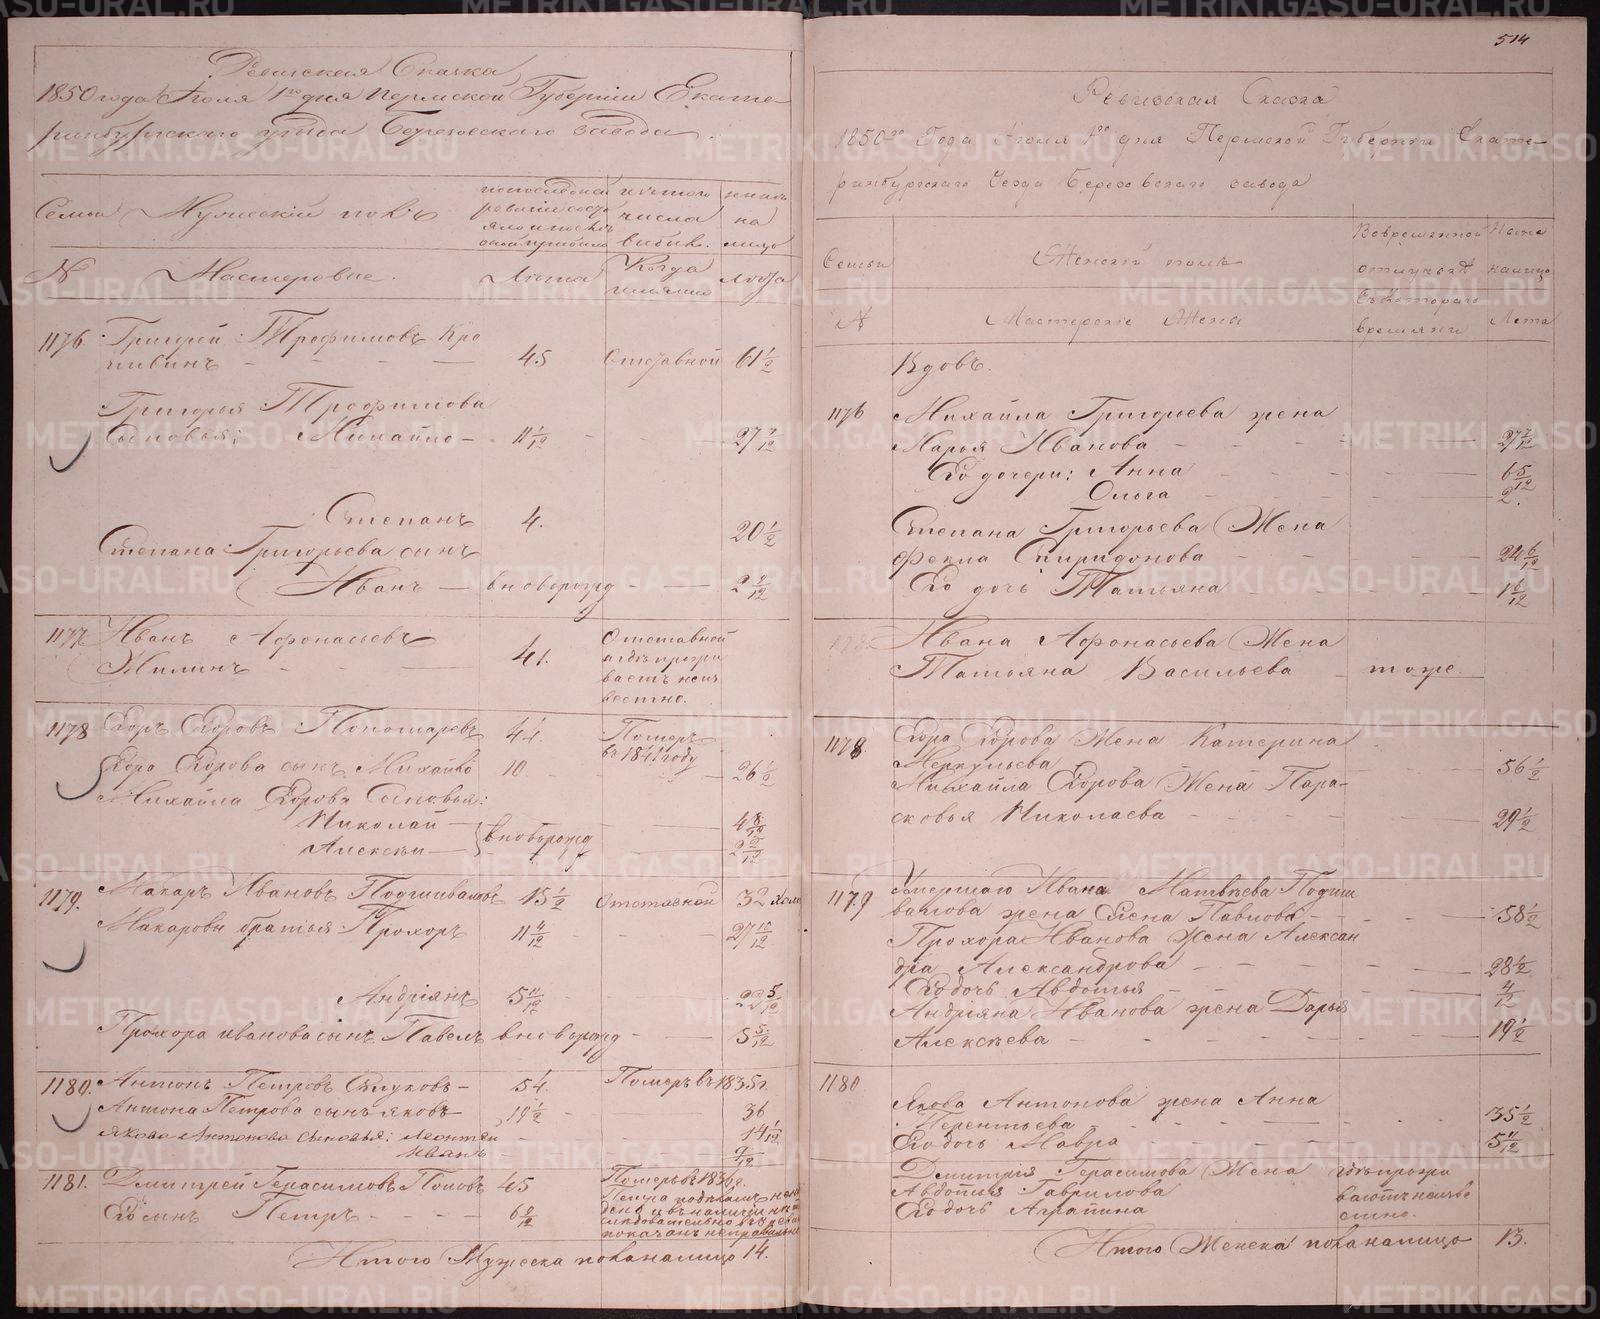 Ревижская Сказка
1850 года Июля 1го дня Пермской Губернии Екате-
ринбургскаго уезда Березовскаго завода
Семьи Мужескій полъ
по последней ревизіи состояло и после оной прибыло
изъ того числа выбыло.
ныне на лицо
№ Мастеровые. Лѣта Когда именно Лѣта
1176 Григорій Трофимовъ Кро
пивинъ 45 Отставной 61 1/2
Григорья Трофимова
Сыновья: Михайло 11 1/12 27 7/12
Степанъ 4. 20 1/2
Степана Григорьева сынъ
Иванъ вновьрожд 2 2/12
1177 Иванъ Афонасьевъ
Жилинъ 41. Отставной
а где прожи
ваетъ неиз
вестно.
1178 Егоръ Егоровъ Пономаревъ 44. Померъ
въ 1841 году
Егора Егорова сынъ Михайло 10 26 1/2
Михайла Егорова Сыновья:
Николай 4 8/12
Алексѣй вновьрожд 2 2/12
1179. Макаръ Ивановъ Подшиваловъ 15 1/2 Отставной 32
Макаровы братья Прохоръ 11 4/12 27 10/12
Андріянъ 5 11/12 22 5/12
Прохора Иванова сынъ Павелъ вновьрожд 5 5/12
1180. Антонъ Петровъ 54. Померъ въ 1835 г.
Антона Петрова сынъ Яковъ 19 1/2 36
Якова Антонова сыновья: Леонтей 14 1/12
Иванъ 7/12
1181. Дмитрей Герасимовъ Поповъ 45 Померъ въ 1836 г.
Его сынъ Петръ 6 2/12
показанъ неправильно
Итого Мужеска пола на лицо 14.
514
Ревизская Сказка
1850го Года Июля 1го дня Пермской Губерніи Екате-
ринбургскаго Уезда Березовскаго завода
Семьи Женскій полъ
Вовременной отлучьке
Ныне налицо
№ Мастерскіе Жены
Съ котораго времяни
Лета
Вдовъ.
1176 Михайла Григорьева жена
Марья Иванова 27 7/12
Его дочери: Анна 6 5/12
Ольга 2.
Степана Григорьева Жена
Фекла Спиридонова 24 6/12
Его дочь Татьяна 1 6/12
Ивана Афонасьева Жена
Татьяна Васильева тоже.
1178 Егора Егорова Жена Катерина
Меркульева 56 1/2
Михайла Егорова Жена Пара-
сковья Николаева 29 1/2
1179 Умершаго Ивана Матвѣева Подши
валова жена Елена Павлова 58 1/2
Прохора Иванова жена Алексан
дра Александрова 28 1/2
Его дочь Авдотья 4/12
Андріяна Иванова жена Дарья
Алексѣева 19 1/2
1180 Якова Антонова жена Анна
Терентьева 35 1/2
Его дочь Мавра 5 11/12
Дмитрія Герасимова Жена где прожи
Авдотья Гаврилова ваютъ неизве
Его дочь Аграпина стно.
Итого Женска пола налицо 13.
METRIKI.GASO-URAL.RU